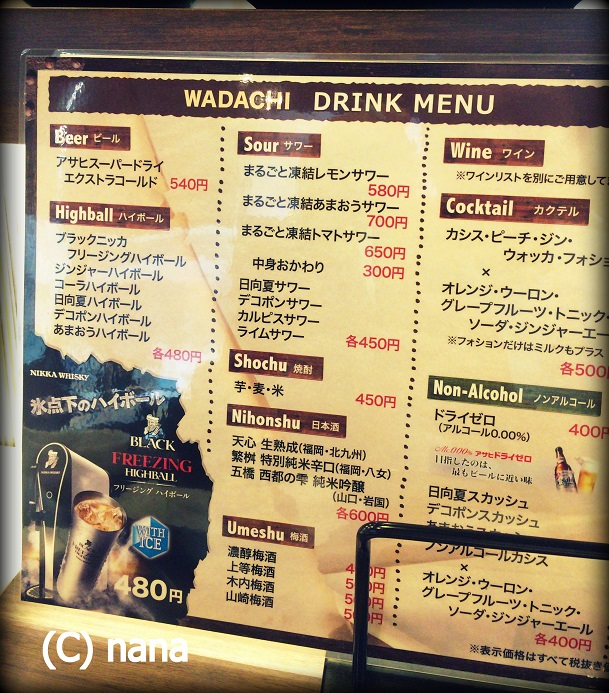 WADACHI DRINK MENU
Beer ビール
アサヒスーパードライ
エクストラコールド 540円
Highball ハイボール
ブラックニッカ
フリージングハイボール
ジンジャーハイボール
コーラハイボール
日向夏ハイボール
デコポンハイボール
あまおうハイボール
各480円
NIKKA WHISKY
氷点下のハイボール
BLACK
FREEZING
HIGHBALL
フリージング ハイボール
WITH
ICE
480円
Sour サワー
まるごと凍結レモンサワー
580円
まるごと凍結あまおうサワー
700円
まるごと凍結トマトサワー
650円
中身おかわり 300円
日向夏サワー
デコポンサワー
カルピスサワー
ライムサワー
各450円
Shochu 焼酎
芋・麦・米 450円
Nihonshu 日本酒
天心 生熟成(福岡・北九州)
繁桝 特別純米辛口(福岡・八女)
五橋 西都の雫 純米吟醸
(山口・岩国)
各600円
Umeshu 梅酒
濃醇梅酒
上等梅酒
木内梅酒
山崎梅酒
Wine ワイン
※ワインリストを別にご用意して
Cocktail カクテル
カシス・ピーチ・ジン・
ウォッカ・フォショ
×
オレンジ・ウーロン・
グレープフルーツ・トニック・
ソーダ・ジンジャーエール
※フォションだけはミルクもプラス
各500
Non-Alcohol ノンアルコール
ドライゼロ 400円
(アルコール0.00%)
アサヒドライゼロ
目指したのは、
最もビールに近い味
日向夏スカッシュ
デコポンスカッシュ
あまおうスカッシュ
ノンアルコールカシス
×
オレンジ・ウーロン・
グレープフルーツ・トニック・
ソーダ・ジンジャーエール
各400円
※表示価格はすべて税抜き
(C) nana